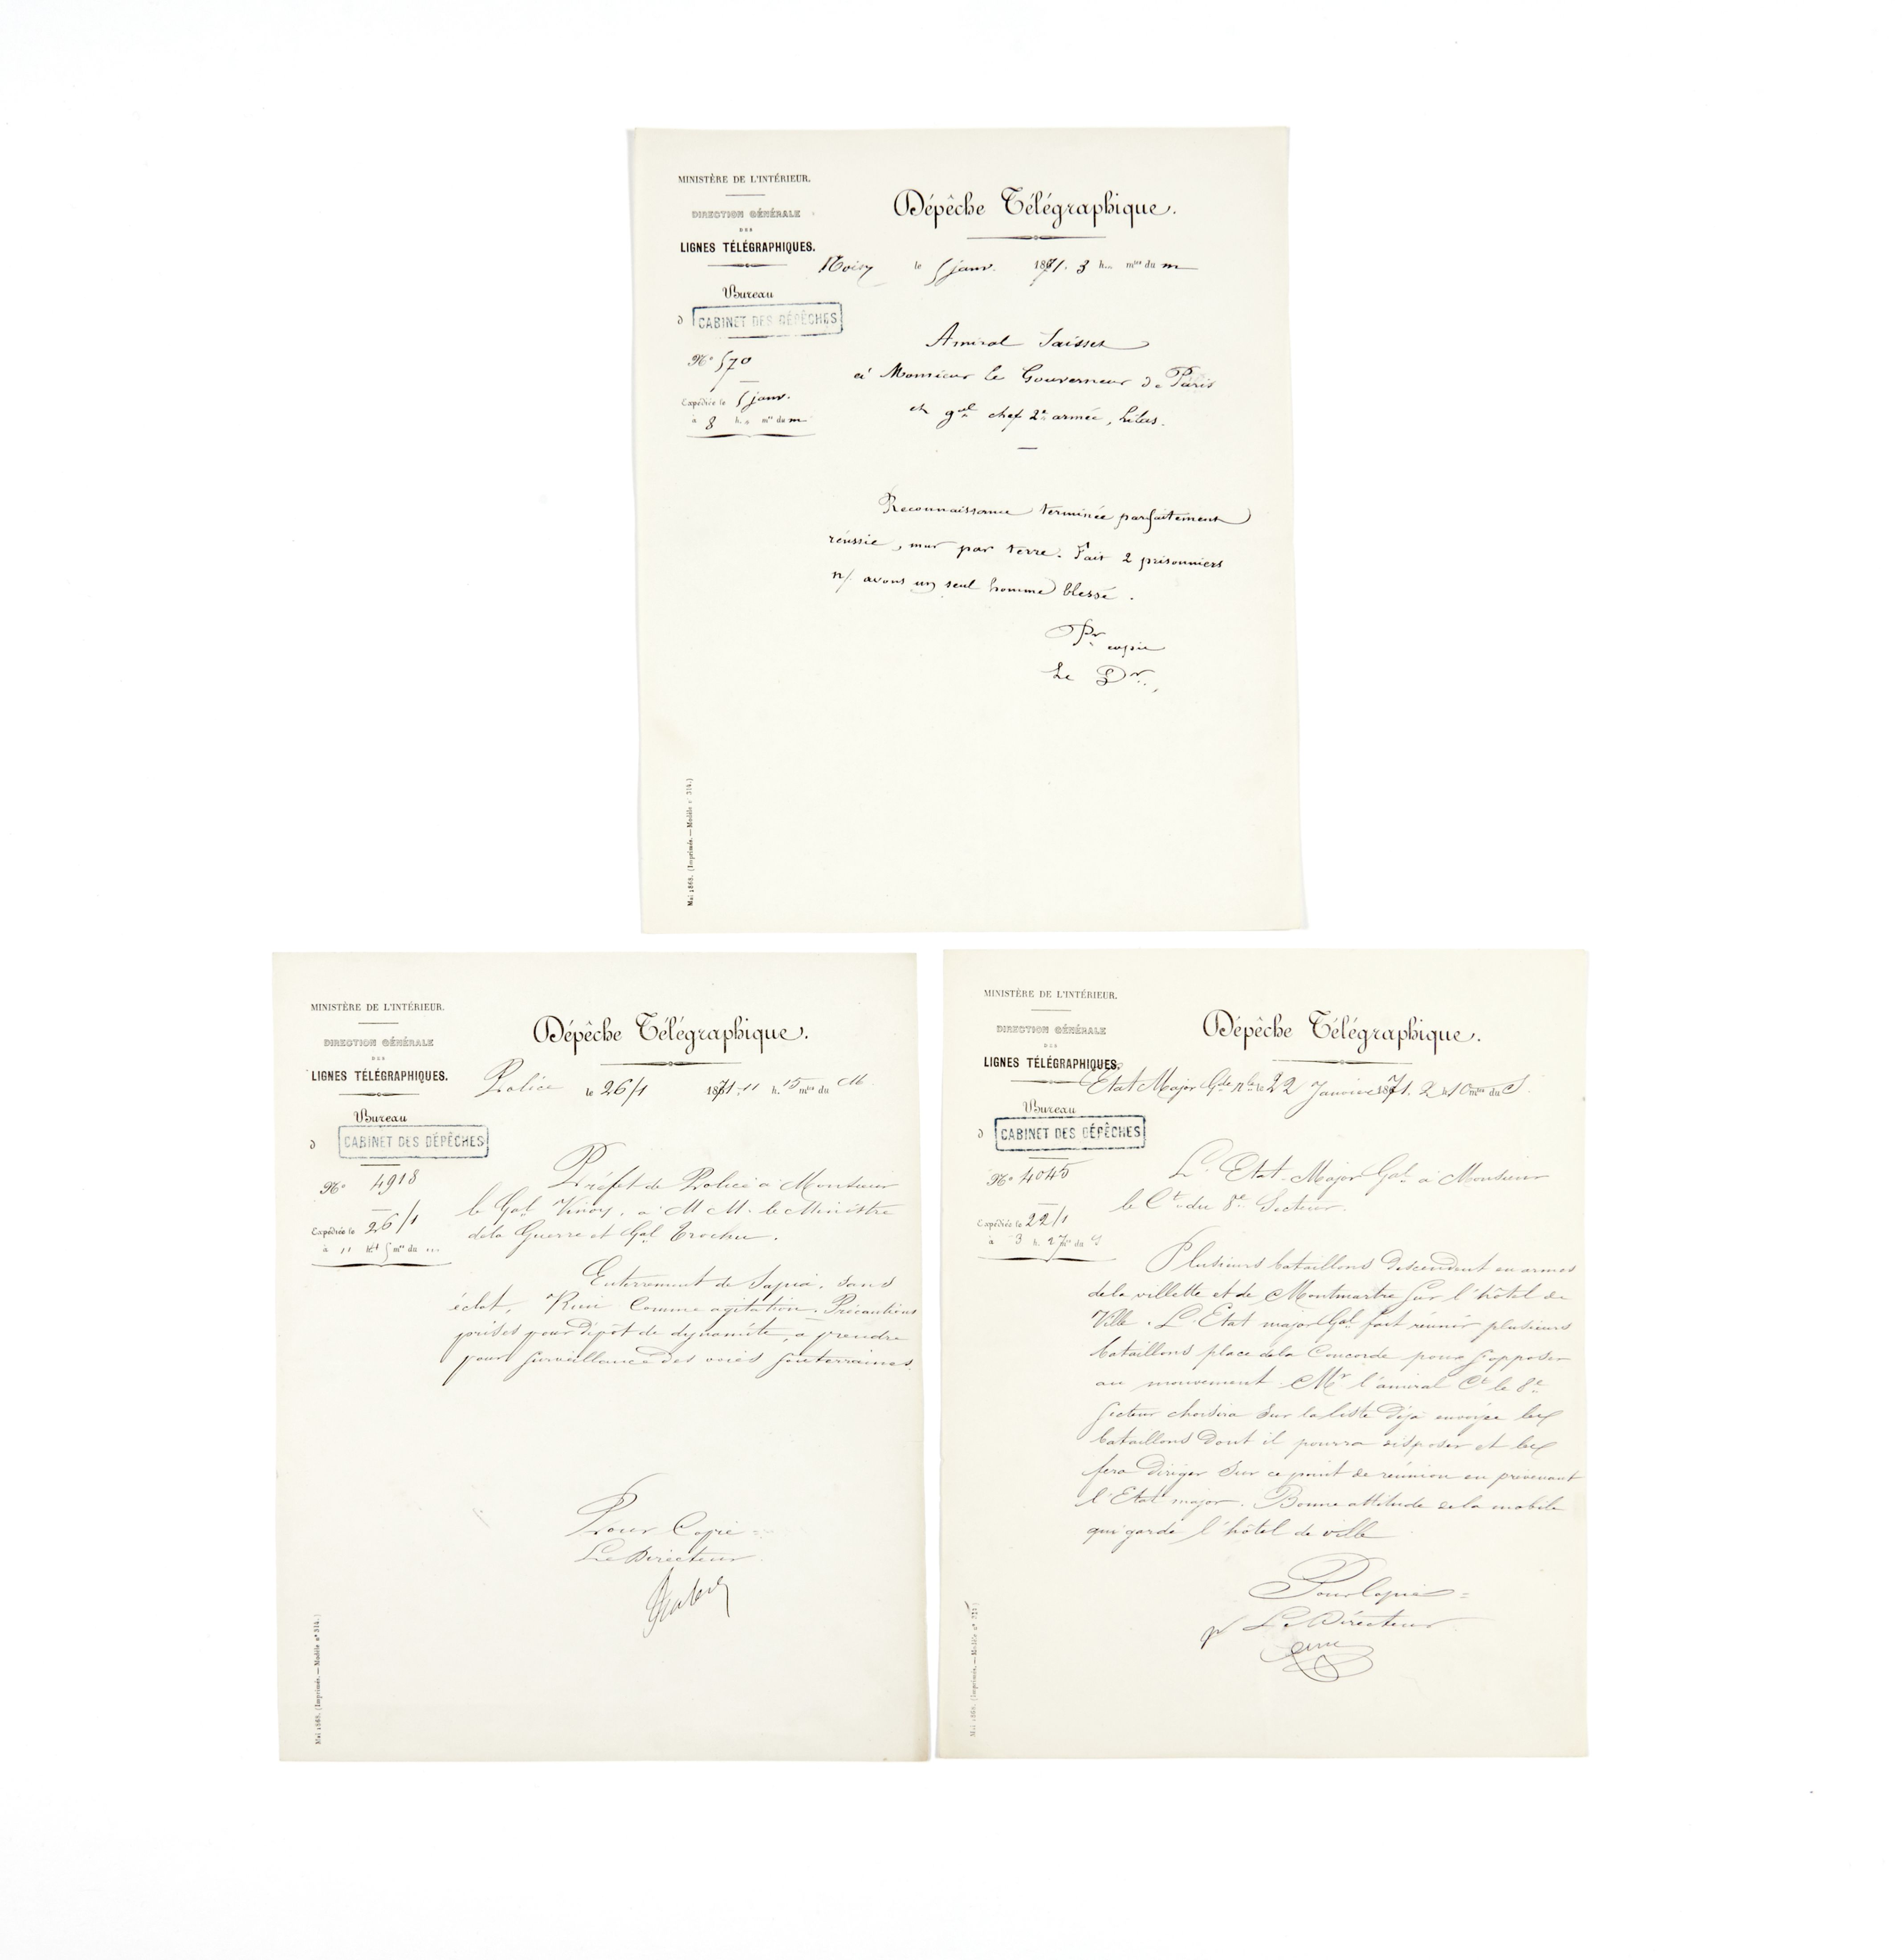 MINISTÈRE DE L'INTÉRIEUR.
DIRECTION GÉNÉRALE
DES
LIGNES TÉLÉGRAPHIQUES.
Dépêche Télégraphique.
Noisy le 5 janv. 1871. 3 h. mtes du m
Bureau
d CABINET DES DÉPÊCHES
N° 570
Expédiée le 5 janv.
à 8 h. mtes du m
Amiral Saisset
à Monsieur le Gouverneur de Paris
et gal chef 2e armée, Lilas.
Reconnaissance terminée parfaitement
réussie, mur par terre. Fait 2 prisonniers
n/ avons un seul homme blessé.
Pr copie
Le Dr.,
Mai 1868. (Imprimés. — Modèle n° 314.)
MINISTÈRE DE L'INTÉRIEUR.
DIRECTION GÉNÉRALE
DES
LIGNES TÉLÉGRAPHIQUES.
Dépêche Télégraphique.
Police le 26/1 1871. 11 h. 15 mtes du M
Bureau
d CABINET DES DÉPÊCHES
N° 4918
Expédiée le 26/1
à 11 h. mtes du
Préfet de Police à Monsieur
le Gal Vinoy, à M M. le Ministre
de la Guerre et Gal Trochu.
Enterrement de Sapia, sans
éclat, Rien comme agitation. Précautions
prises pour dépôt de dynamite, à prendre
pour surveillance des voies souterraines.
Pour Copie
Le Directeur
Mai 1868. (Imprimés. — Modèle n° 314.)
MINISTÈRE DE L'INTÉRIEUR.
DIRECTION GÉNÉRALE
DES
LIGNES TÉLÉGRAPHIQUES.
Dépêche Télégraphique.
Etat Major Gde Nle le 22 Janvier 1871. 2 h 10 mtes du S.
Bureau
d CABINET DES DÉPÊCHES
N° 4045
Expédiée le 22/1
à 3 h. 27 mtes du S
L'Etat-Major Gal à Monsieur
le Ct du 8e Secteur.
Plusieurs bataillons descendent en armes
de la villette et de Montmartre sur l'hôtel de
Ville. L'Etat major Gal fait réunir plusieurs
bataillons place de la Concorde pour s'opposer
au mouvement. Mr l'amiral Ct le 8e
secteur choisira sur la liste déjà envoyée les
bataillons dont il pourra disposer et les
fera diriger sur ce point de réunion en prévenant
l'Etat major. Bonne attitude de la mobile
qui garde l'hôtel de ville
Pour Copie =
pr Le Directeur
Mai 1868. (Imprimés. — Modèle n° 314.)